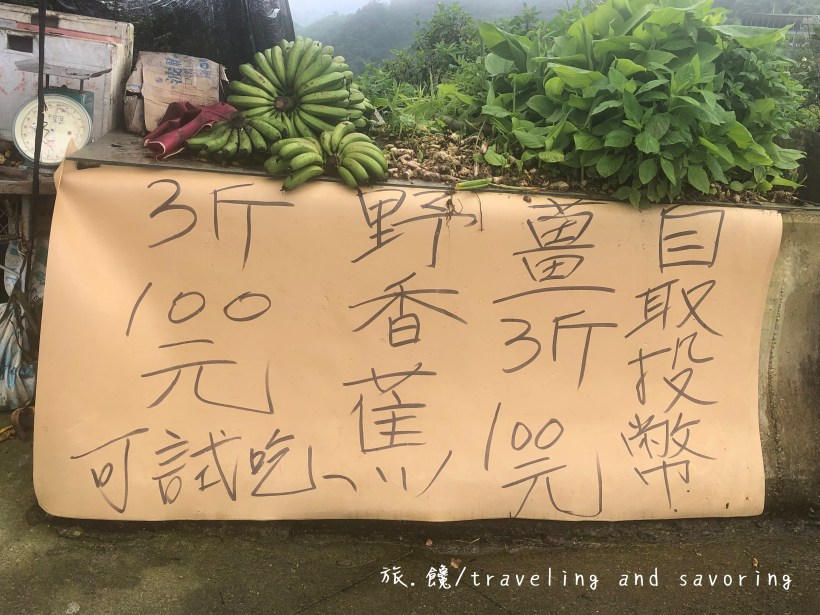 自取投幣
薑3斤100元
野香蕉
3斤100元
可試吃
旅.饞/traveling and savoring